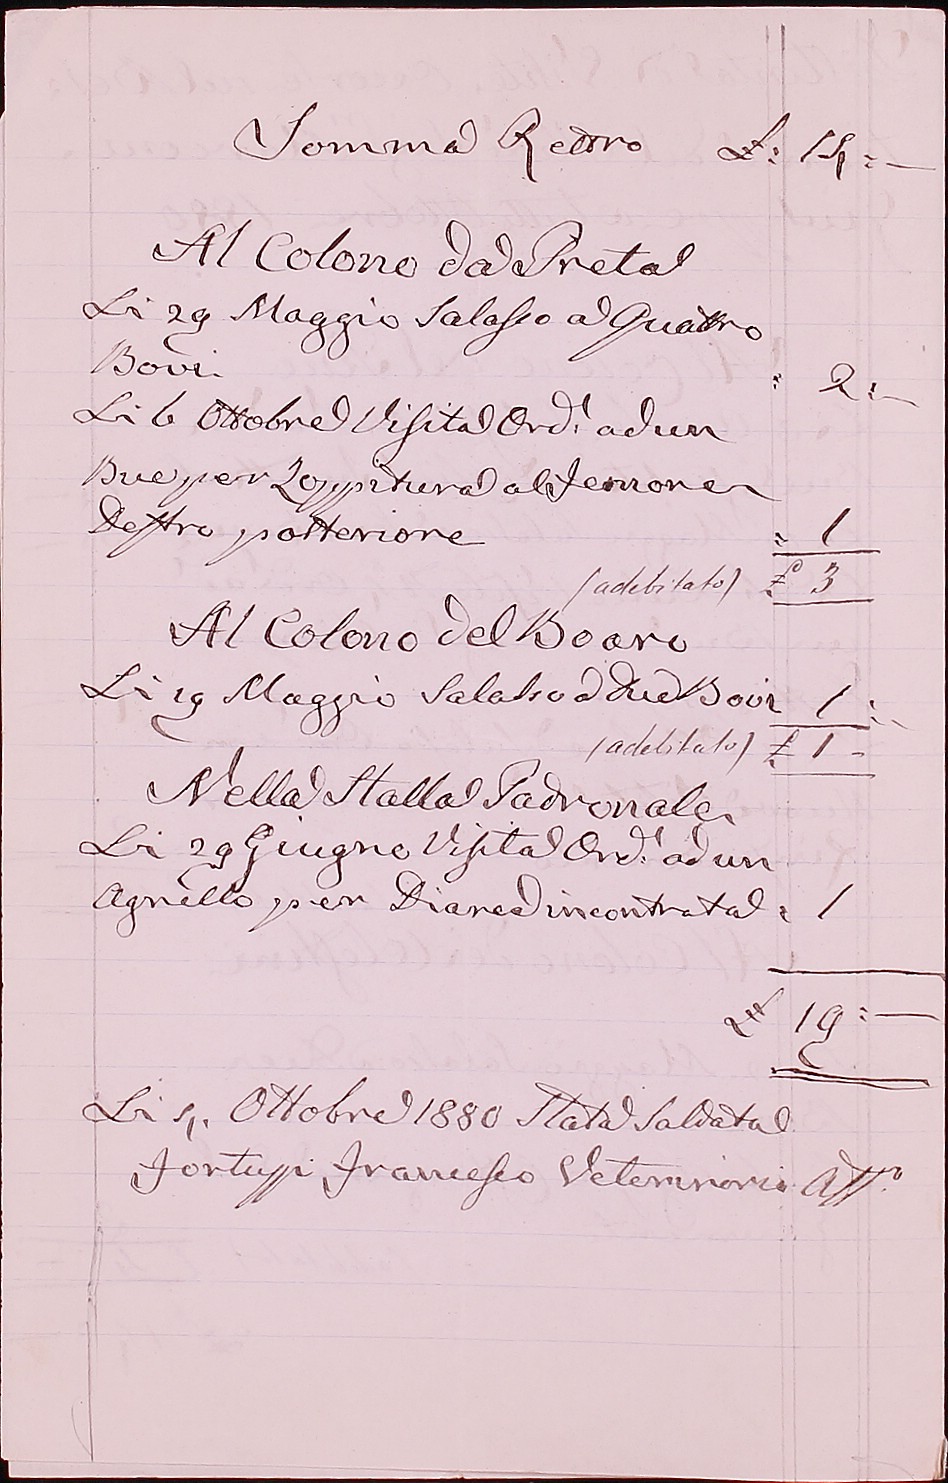 Somma Retro £: 14:—
Al Colono da Preta
Li 29 Maggio Salasso a Quattro
Bovi. " 2:—
Li 6 Ottobre Visita Ord.ª ad un
Bue per Zoppitura al femore
Destro posteriore " 1
(adebitato) £ 3
Al Colono del Boaro
Li 19 Maggio Salasso a Due Bovi 1:—
(adebitato) £ 1 -
Nella Stalla Padronale
Li 29 Giugno Visita Ord.ª ad un
Agnello per Diarea incontrata " 1
£ 19:—
Li 4. Ottobre 1880 Stata Saldata
Fortuzzi Francesco Veterinario Aff.°